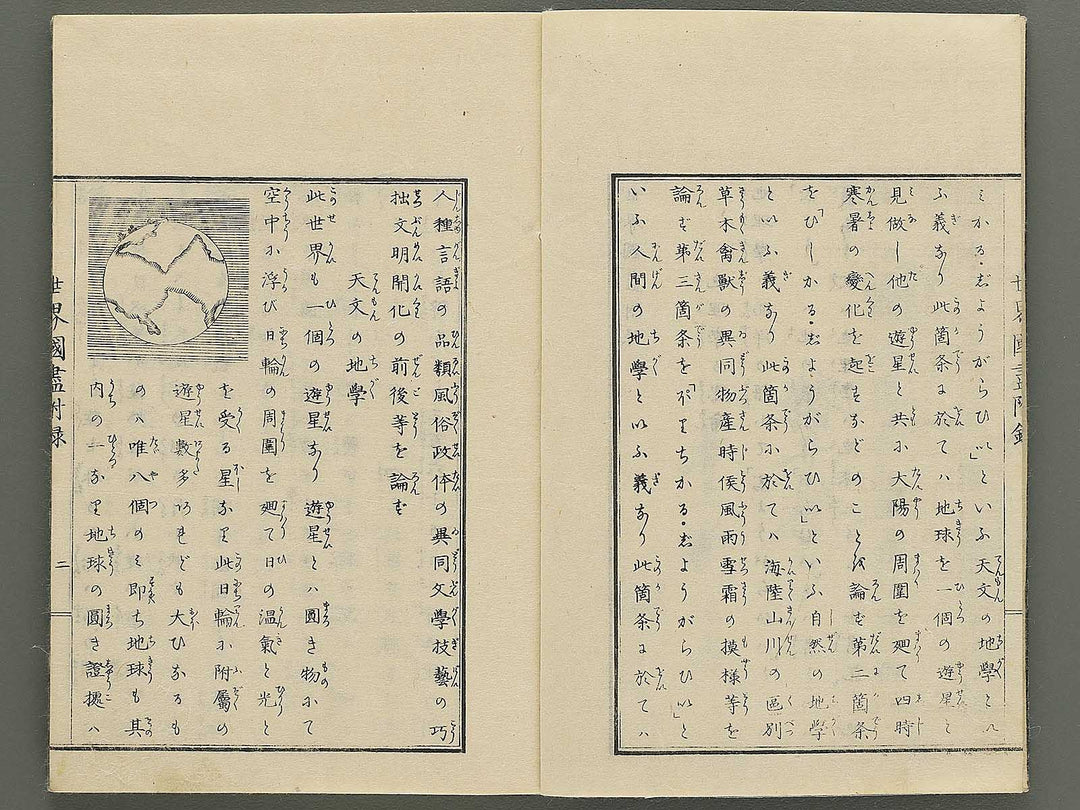 ミカる・志ようがらひ𛂞」といふ天文の地學とハ
ふ義なり此箇条に於てハ地球を一個の遊星と
見做し他の遊星と共に大陽の周圍を廻て四時
寒暑の變化を起すなどのことを論ず第二箇条
を「ひしかる・志ようがらひ𛂞」といふ自然の地學
といふ義なり此箇条に於てハ海陸山川の區別
草木禽獸の異同物産時候風雨雪霜の摸様等を
論ず第三箇条を「ぽりちかる・志ようがらひ𛂞」と
いふ人間の地學といふ義なり此箇条に於てハ
人種言語の品類風俗政体の異同文學技藝の巧
拙文明開化の前後等を論ず
天文の地學
此世界も一個の遊星なり遊星とハ圓き物にて
空中に浮び日輪の周圍を廻て日の温氣と光と
を受る星なり此日輪に附屬の
遊星數多あれども大ひなるも
のハ唯八個のミ即ち地球も其
内の一なり地球の圓き證拠ハ
世界國盡附録
二